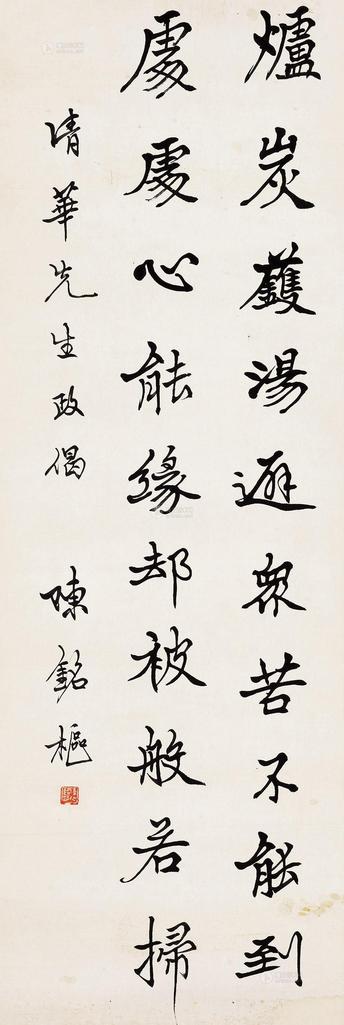 爐炭鑊湯避眾苦不能到
處處心能緣却被般若掃
清華先生政偈
陳銘樞